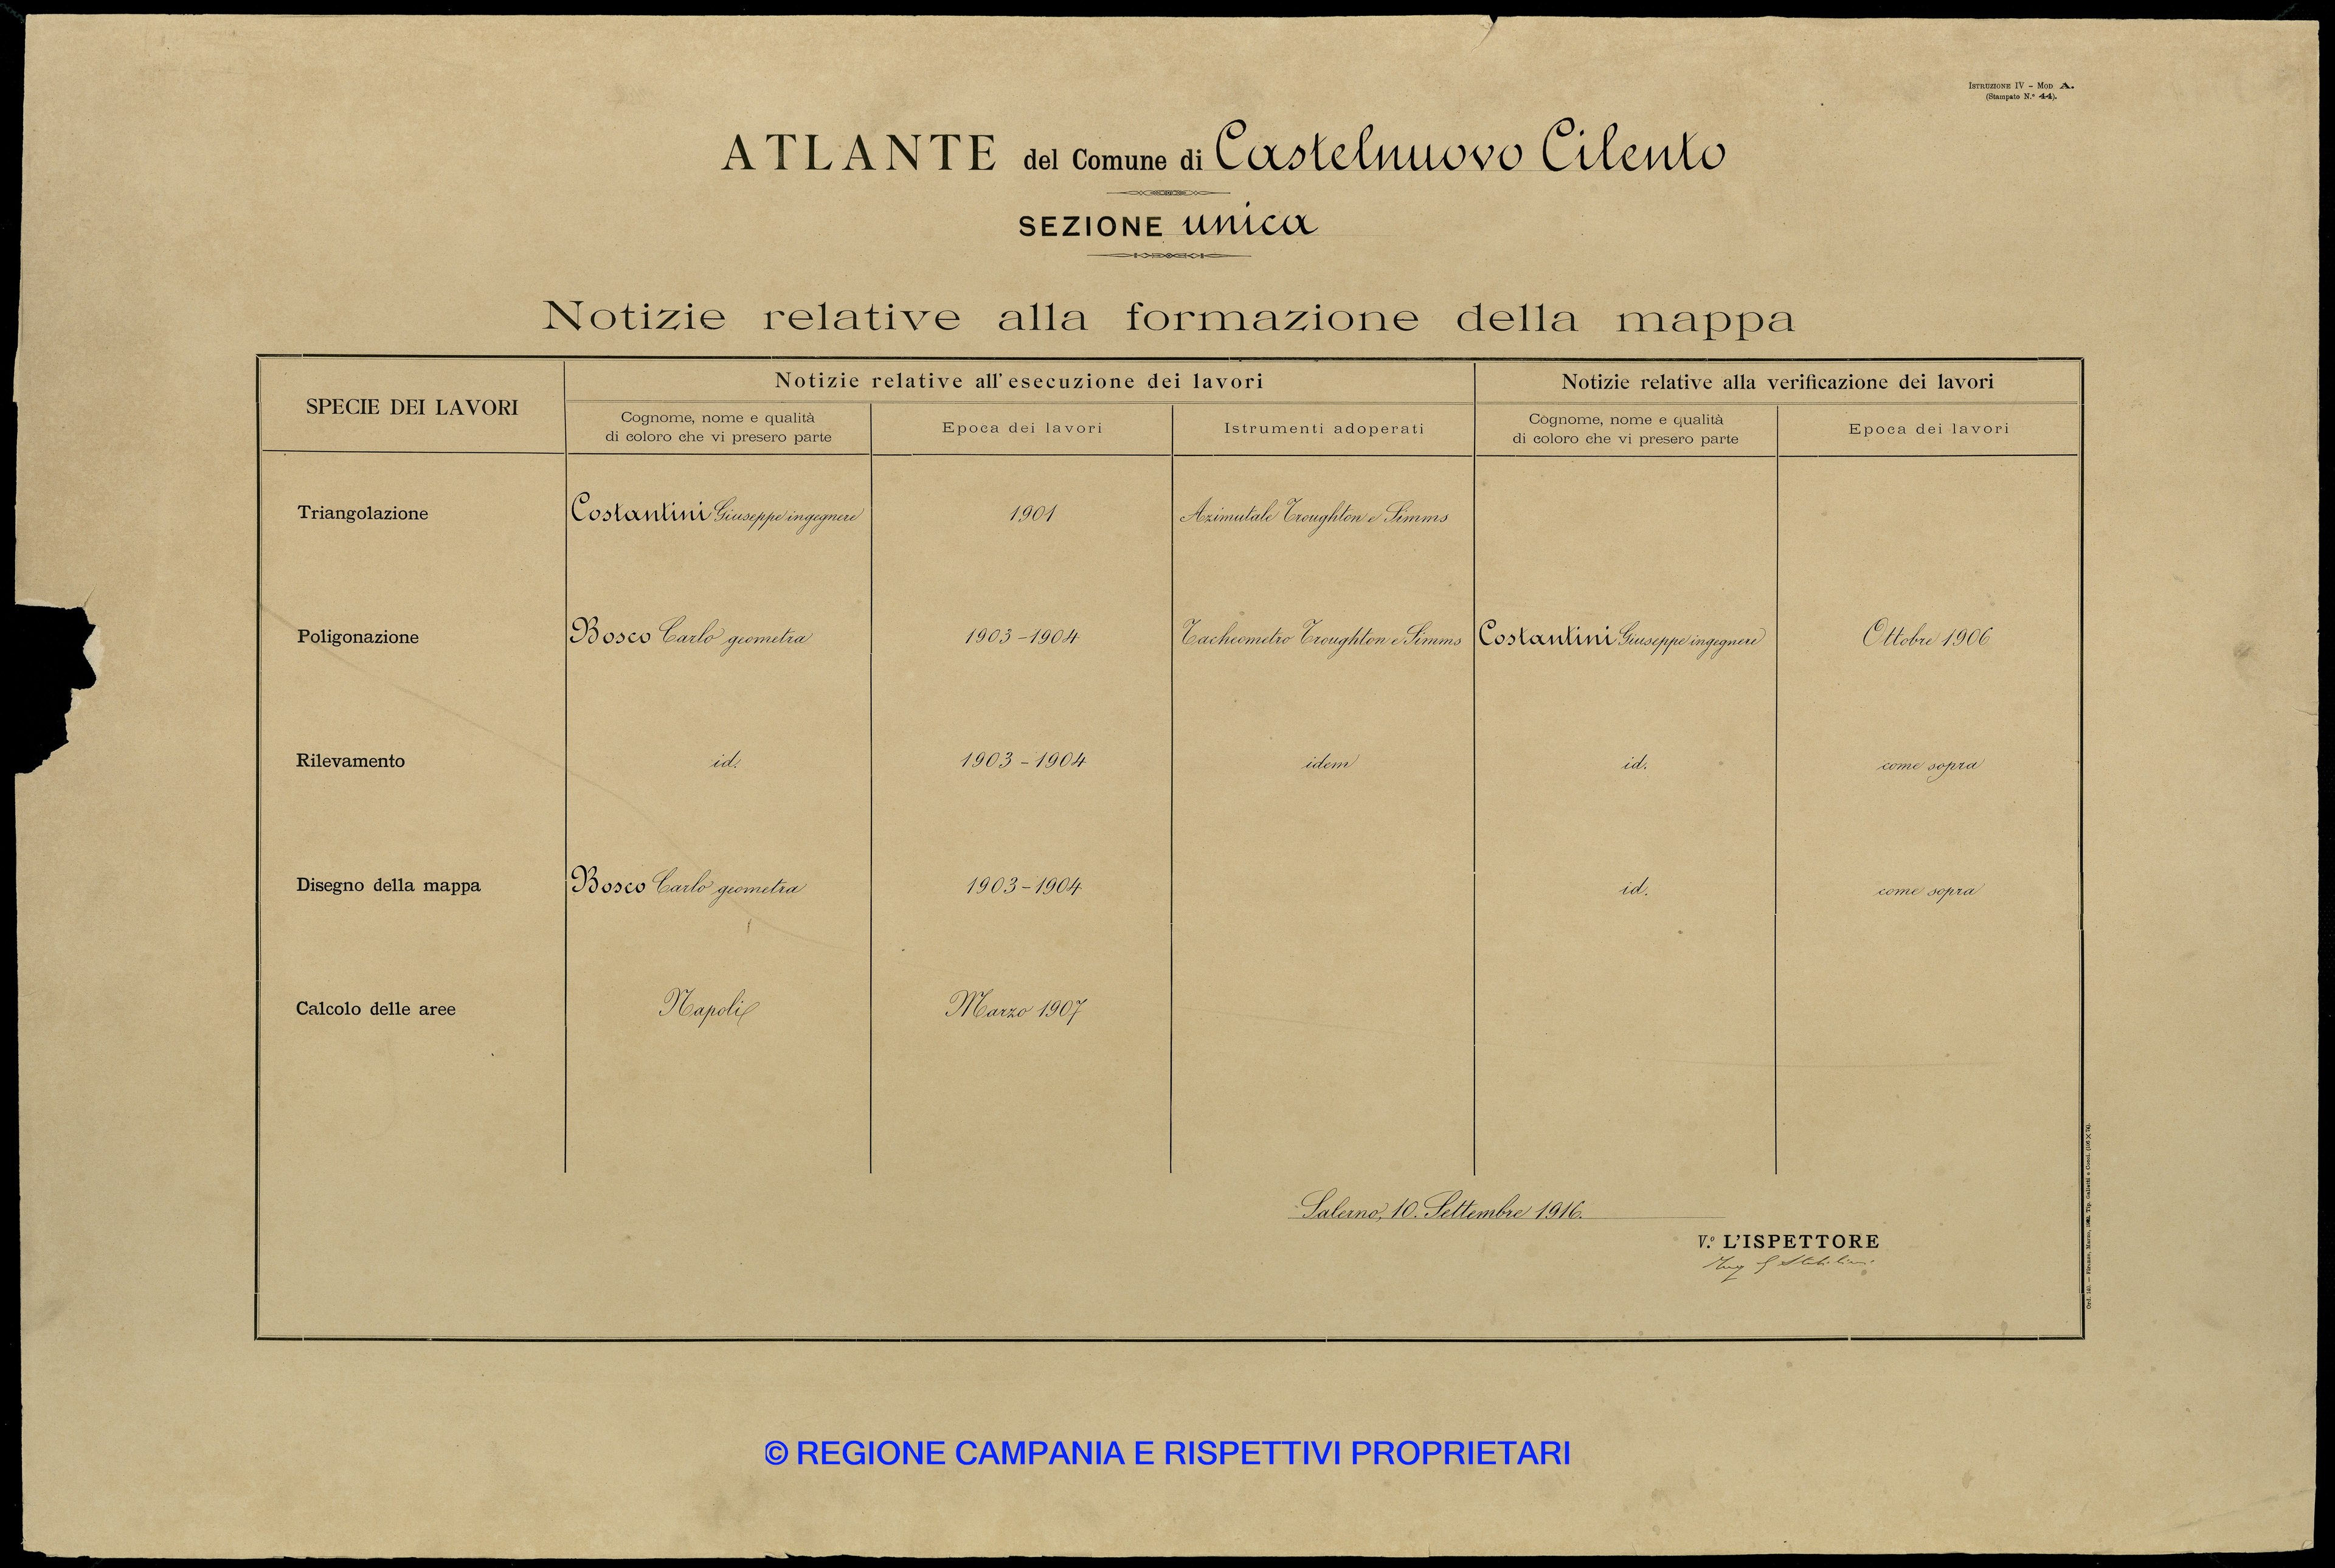 ISTRUZIONE IV – MOD A.
(Stampato N.º 44).
ATLANTE del Comune di Castelnuovo Cilento
SEZIONE unica
Notizie relative alla formazione della mappa
SPECIE DEI LAVORI
Notizie relative all'esecuzione dei lavori
Notizie relative alla verificazione dei lavori
Cognome, nome e qualità
di coloro che vi presero parte
Epoca dei lavori
Istrumenti adoperati
Cognome, nome e qualità
di coloro che vi presero parte
Epoca dei lavori
Triangolazione
Costantini Giuseppe ingegnere
1901
Azimutale Troughton e Simms
Poligonazione
Bosco Carlo geometra
1903–1904
Tacheometro Troughton e Simms
Costantini Giuseppe ingegnere
Ottobre 1906
Rilevamento
id.
1903–1904
idem
id.
come sopra
Disegno della mappa
Bosco Carlo geometra
1903–1904
id.
come sopra
Calcolo delle aree
Napoli
Marzo 1907
Salerno, 10. Settembre 1916.
V.º L'ISPETTORE
© REGIONE CAMPANIA E RISPETTIVI PROPRIETARI